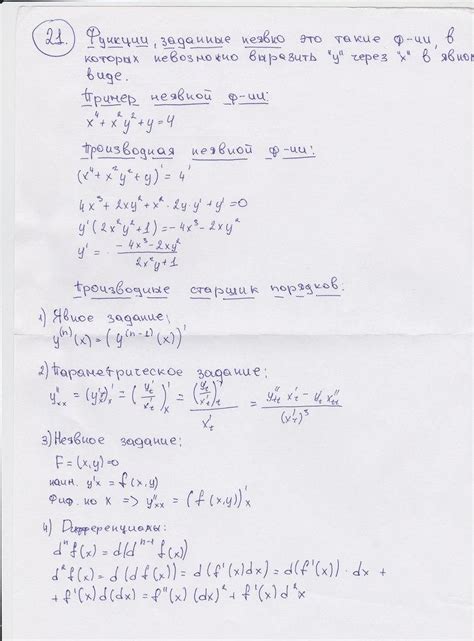 21. Функции, заданные неявно это такие ф-ии, в
которых невозможно выразить "y" через "x" в явном
виде.
Пример неявной ф-ии:
x⁴ + x²y² + y = 4
Производная неявной ф-ии:
(x⁴ + x²y² + y)' = 4'
4x³ + 2xy² + x² · 2y · y' + y' = 0
y'(2x²y² + 1) = -4x³ - 2xy²
y' = (-4x³ - 2xy²) / (2x²y + 1)
Производные старших порядков:
1) Явное задание:
y⁽ⁿ⁾(x) = (y⁽ⁿ⁻¹⁾(x))'
2) Параметрическое задание:
y''ₓₓ = (y'ₓ)'ₓ = (y'ₜ / x'ₜ)'ₓ = (y'ₜ / x'ₜ)'ₜ / x'ₜ = (y''ₜₜ x'ₜ - y'ₜ x''ₜₜ) / (x'ₜ)³
3) Неявное задание:
F = (x,y) = 0
наим. y'x = f(x,y)
Фиф. по x => y''ₓₓ = (f(x,y))'ₓ
4) Дифференциалы:
dⁿf(x) = d(dⁿ⁻¹ f(x))
d²f(x) = d(df(x)) = d(f'(x)dx) = d(f'(x)) · dx +
+ f'(x)d(dx) = f''(x)(dx)² + f'(x)d²x